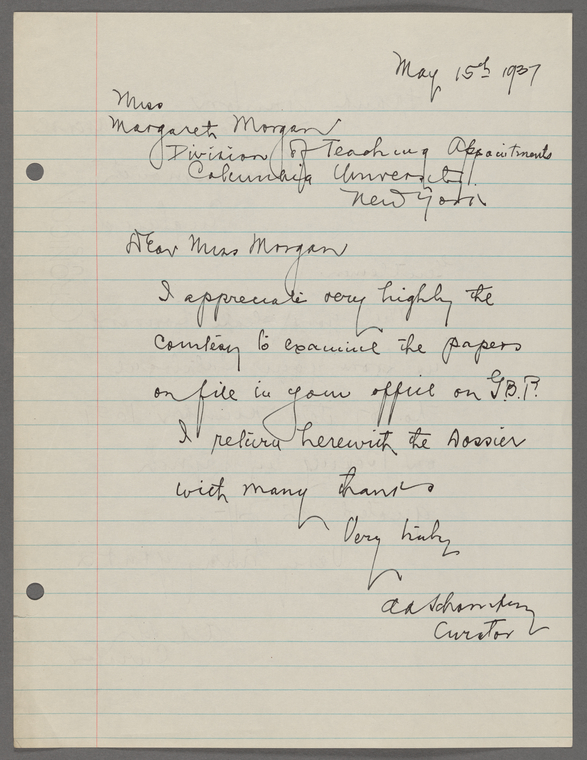 May 15th 1937
Miss
Margaret Morgan
Division of Teaching Appointments
Columbia University.
New York
Dear Miss Morgan
I appreciate very highly the
courtesy to examine the papers
on file in your office on G.B.P.
I return herewith the Dossier
with many thanks
Very truly
A A Schomburg
Curator